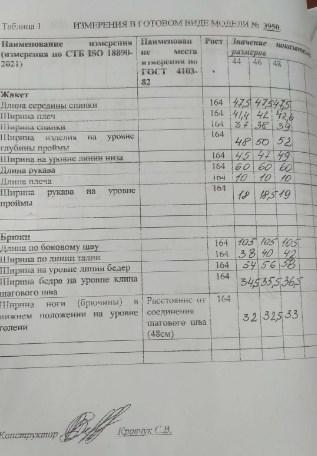 Таблица 1 ИЗМЕРЕНИЯ В ГОТОВОМ ВИДЕ МОДЕЛИ № 3950
Наименование измерения (измерения по СТБ ISO 18890-2021) Наименован ие места измерения по ГОСТ 4103-82 Рост Значение показателя размеров
44 46 48
Жакет
Длина середины спинки 164 47,5 47,5 47,5
Ширина плеч 164 41,4 42 42,6
Ширина спинки 164 37 38 39
Ширина изделия на уровне глубины проймы 164 48 50 52
Ширина на уровне линии низа 164 45 47 49
Длина рукава 164 60 60 60
Длина плеча 164 10 10 10
Ширина рукава на уровне проймы 164 18 18,5 19
Брюки
Длина по боковому шву 164 105 105 105
Ширина по линии талии 164 38 40 42
Ширина на уровне линии бедер 164 54 56 58
Ширина бедра на уровне клина шагового шва 164 34,5 35,5 36,5
Ширина ноги (брючины) в нижнем положении на уровне голени Расстояние от соединения шагового шва (48см) 164 32 32,5 33
Конструктор Кравчук С.В.